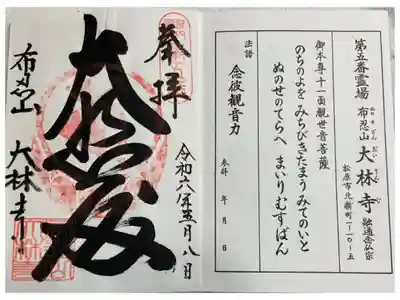 第五番霊場
布忍山 大林寺 融通念仏宗
松原市北新町一ー一〇ー五
御本尊十一面觀世音菩薩
のちのよを みちびきたまう みてのいと
ぬのせのてらへ まいりむすばん
法語 念彼観音力
参拝 年 月 日
奉拝
令和六年五月八日
大悲殿
布忍山 大林寺